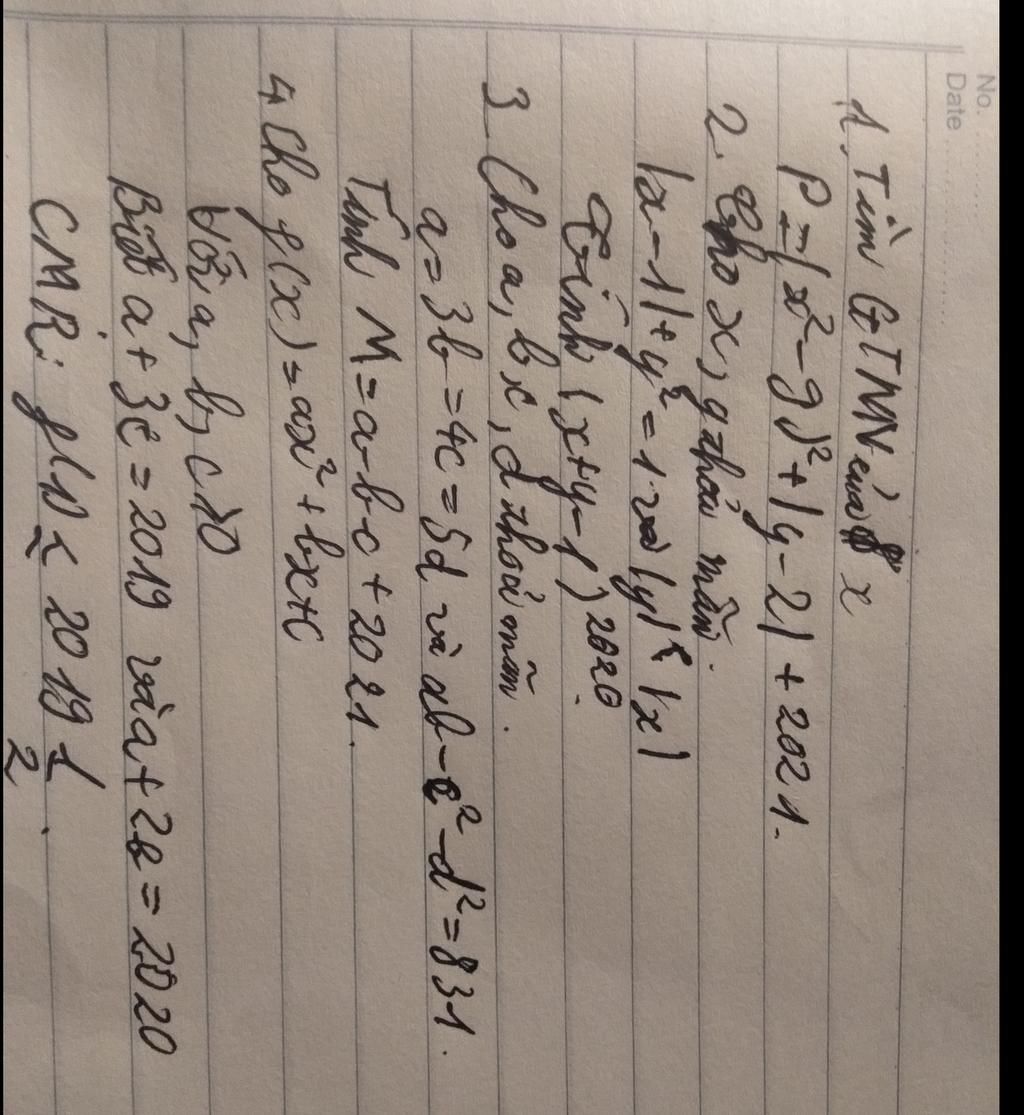 No.
Date
1. Tìm GTNN của x
P = (x² - 9)² + |y - 2| + 2021.
2. Cho x, y thoả mãn.
|x - 1| + y² = 1 và |y| ≤ |x|
Tính (x+y-1)²⁰²⁰.
3. Cho a, b, c, d thoả mãn.
a = 3b = 4c = 5d và ab - c² - d² = 831.
Tính M = a - b - c + 2021.
4. Cho f(x) = ax² + bx + c
Với a, b, c ≥ 0
Biết a + 3c = 2019 và a + 2b = 2020
CMR: f(1) ≤ 2019 1/2.